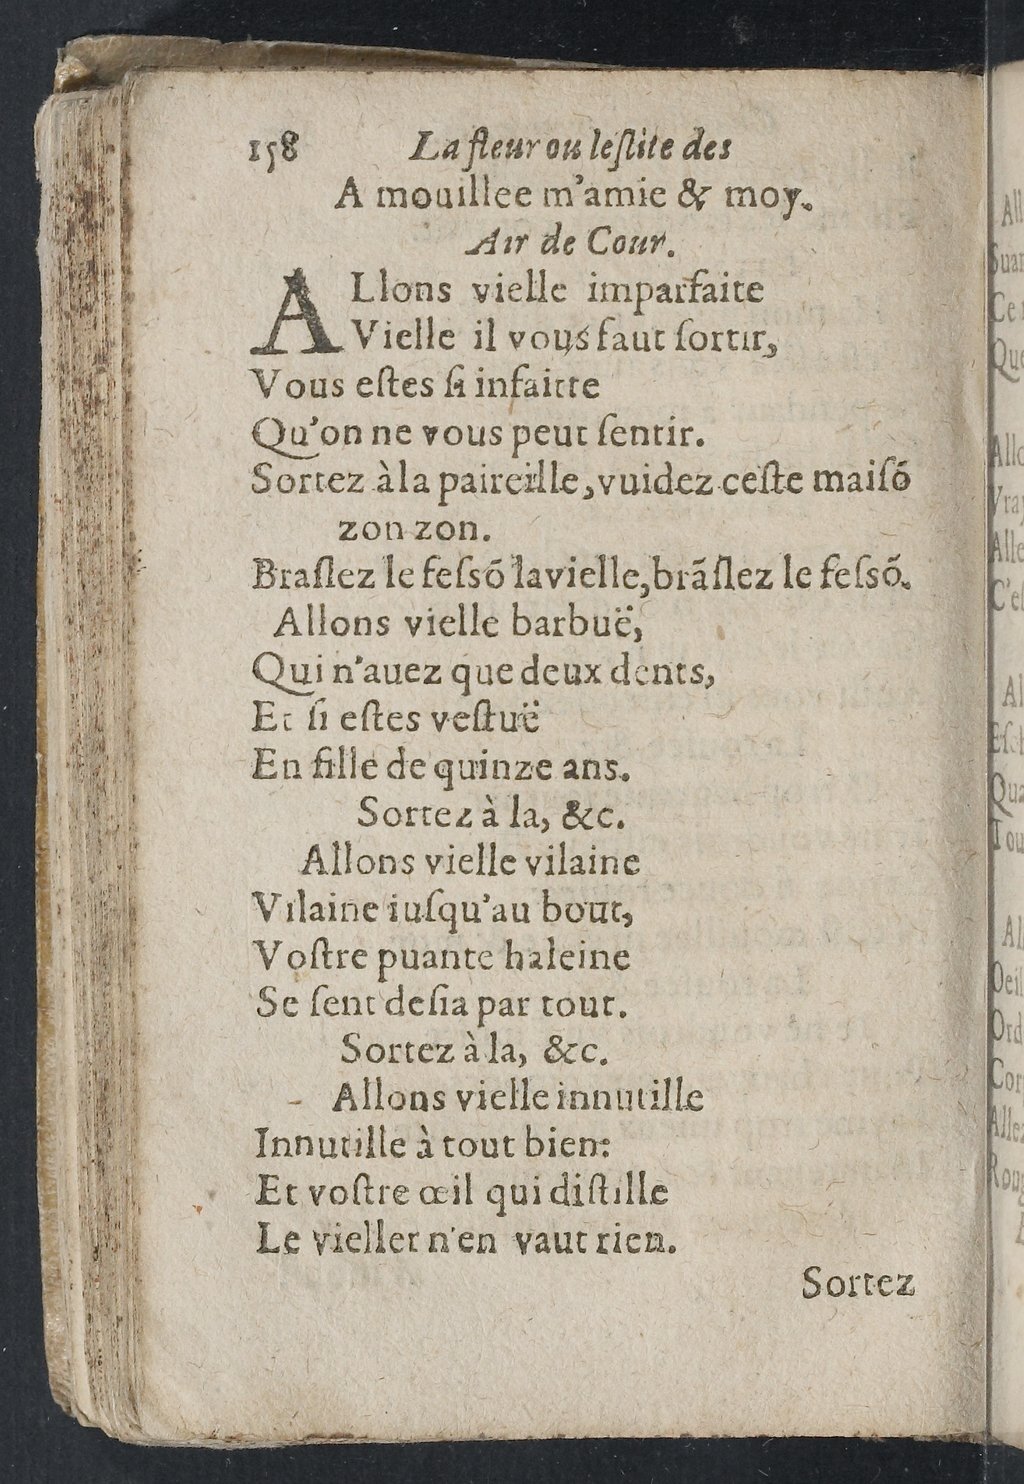 158 La fleur ou leſlite des
A mouillee m'amie & moy.
Air de Cour.
ALlons vielle imparfaite
Vielle il vous faut ſortir,
Vous eſtes ſi infaitte
Qu'on ne vous peut ſentir.
Sortez à la paireille, vuidez ceſte maiſõ
zon zon.
Braſlez le feſsõ la vielle, brãſlez le feſsõ.
Allons vielle barbuë,
Qui n'auez que deux dents,
Et ſi eſtes veſtuë
En fille de quinze ans.
Sortez à la, &c.
Allons vielle vilaine
Vilaine iuſqu'au bout,
Voſtre puante haleine
Se ſent deſia par tout.
Sortez à la, &c.
Allons vielle innutille
Innutille à tout bien:
Et voſtre œil qui diſtille
Le vieller n'en vaut rien.
Sortez